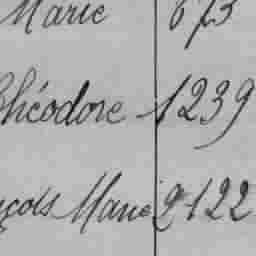 Marie 673
Théodore 1239
nçois Marie 2122